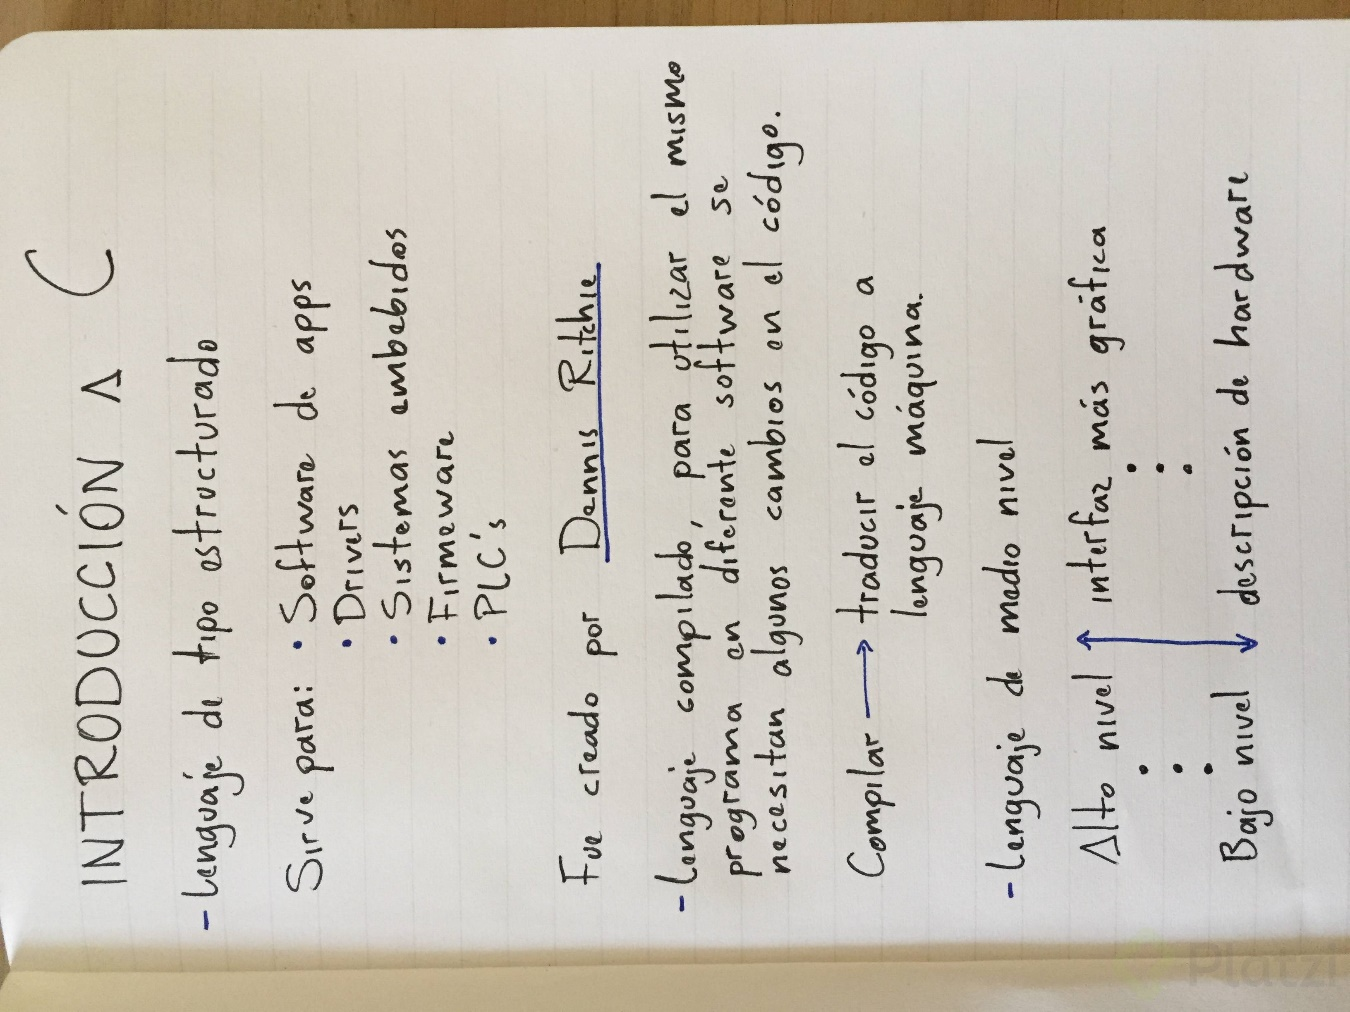 INTRODUCCIÓN A C
- Lenguaje de tipo estructurado
Sirve para: • Software de apps
• Drivers
• Sistemas embebidos
• Firmeware
• PLC's
Fue creado por Dennis Ritchie
- Lenguaje compilado, para utilizar el mismo
programa en diferente software se
necesitan algunos cambios en el código.
Compilar → traducir el código a
lenguaje máquina.
- Lenguaje de medio nivel
Alto nivel interfaz más gráfica
Bajo nivel descripción de hardware
Platzi